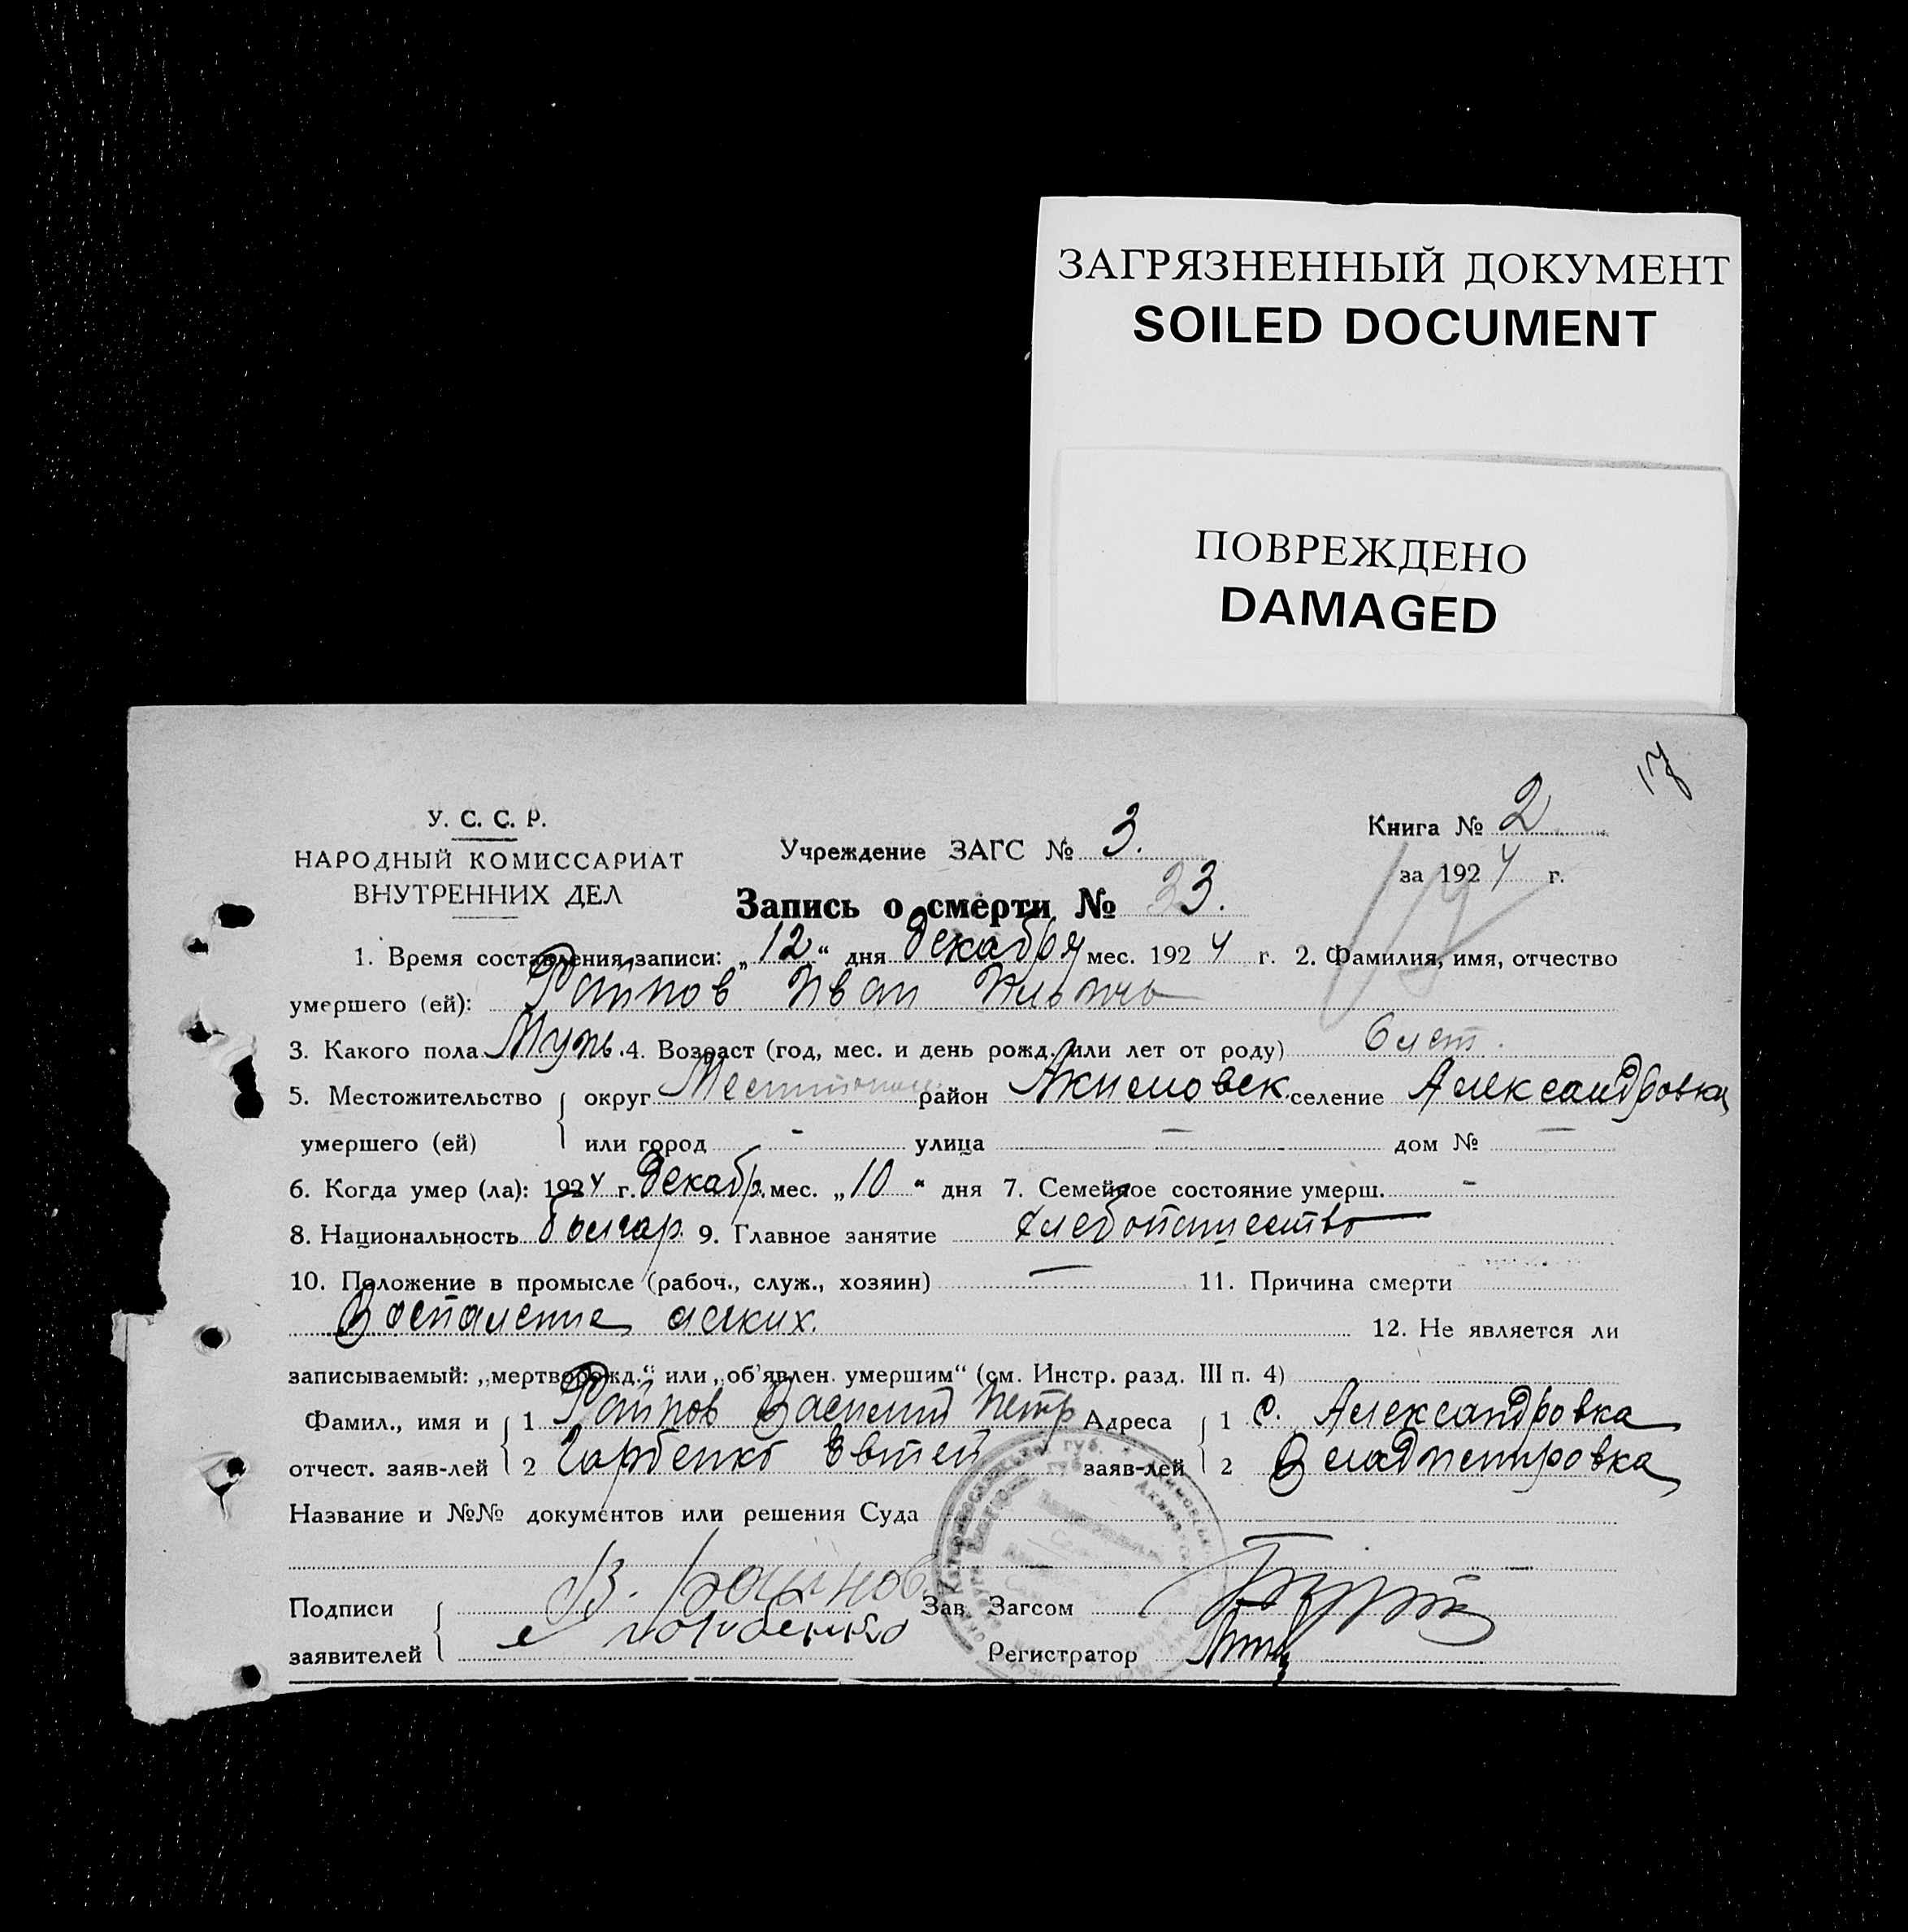 ЗАГРЯЗНЕННЫЙ ДОКУМЕНТ
SOILED DOCUMENT
ПОВРЕЖДЕНО
DAMAGED
17
У. С. С. Р.
НАРОДНЫЙ КОМИССАРИАТ
ВНУТРЕННИХ ДЕЛ
Учреждение ЗАГС № 3.
Книга № 2
за 1924 г.
17
Запись о смерти № 33.
1. Время составления записи: „12“ дня декабря мес. 1924 г. 2. Фамилия, имя, отчество
умершего (ей): Иван
3. Какого пола Муж. 4. Возраст (год, мес. и день рожд. или лет от роду) 6 лет.
5. Местожительство округ район Акимовск селение Александровка
умершего (ей) или город - улица — дом № —
6. Когда умер (ла): 1924 г. декабр. мес. „10“ дня 7. Семейное состояние умерш. -
8. Национальность болгар. 9. Главное занятие хлебопашество
10. Положение в промысле (рабоч., служ., хозяин) — 11. Причина смерти
Воспаление легких. 12. Не является ли
записываемый: „мертворожд.“ или „об'явлен. умершим“ (см. Инстр. разд. III п. 4)
Фамил., имя и 1 Василий Петр Адреса 1 с. Александровка
отчест. заяв-лей 2 Гарбенко Евтей заяв-лей 2 Владпетровка
Название и №№ документов или решения Суда
Подписи В. Зав. Загсом
заявителей Регистратор